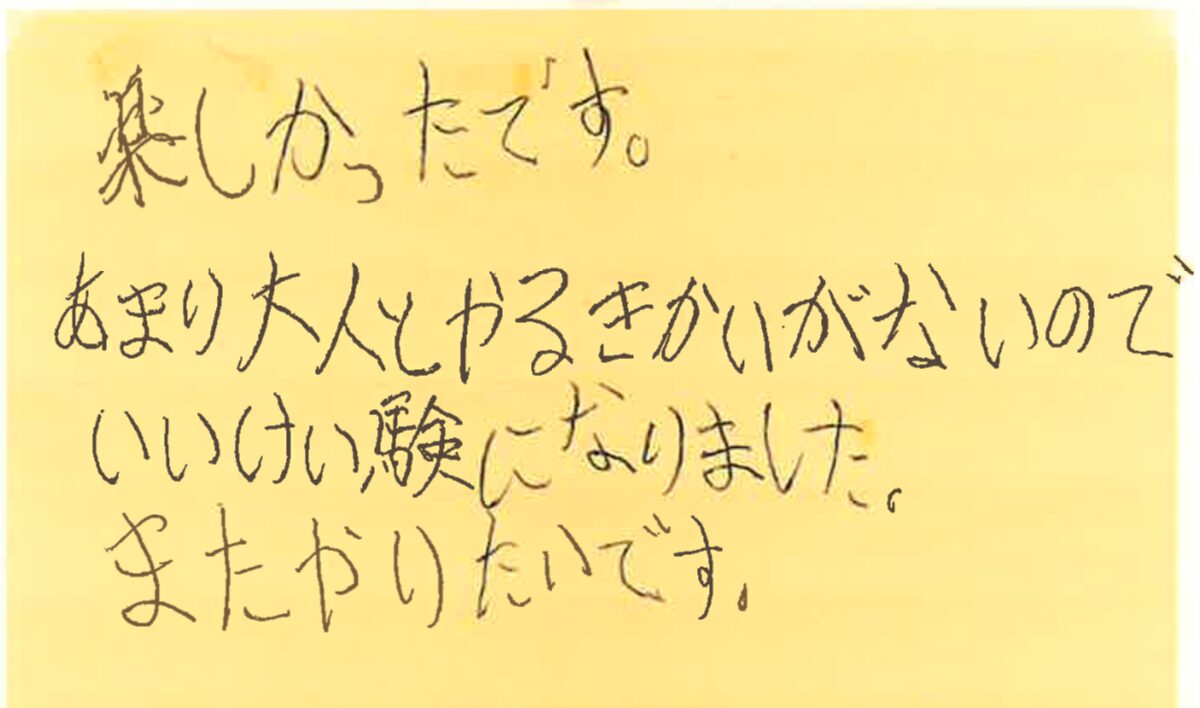 楽しかったです。
あまり大人とやるきかいがないので
いいけい験になりました。
またやりたいです。